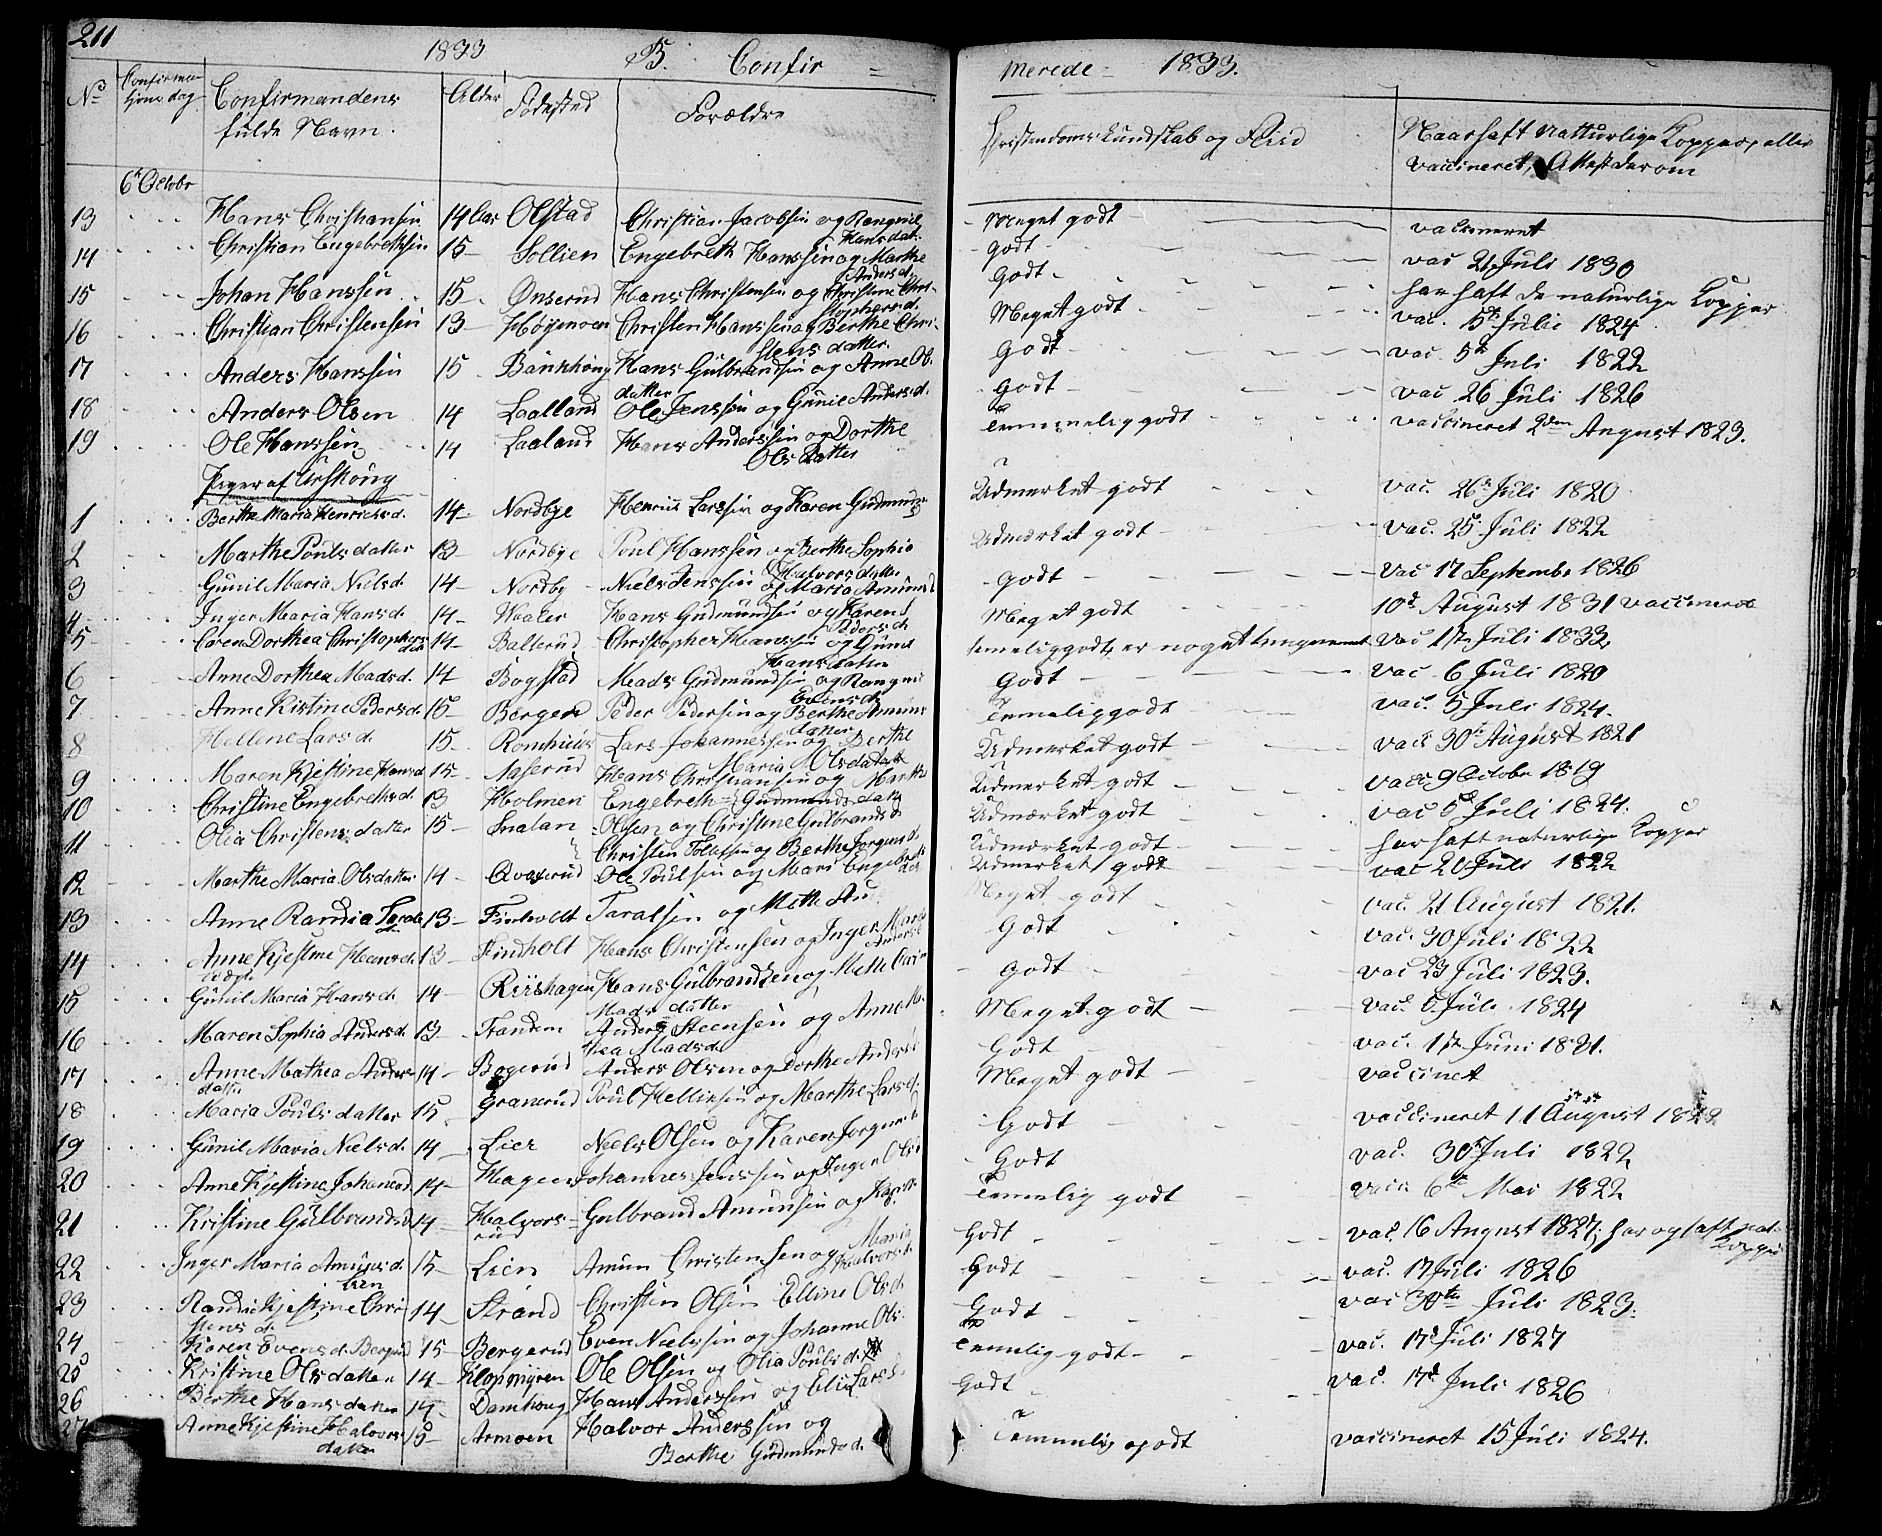 211
1833 B. Confir = merede = 1833.
No Confirmationsdag Confirmandens fulde Navn. Alder Fødested Forældre Christendomskundskab og Flid Naar haft naturlige Kopper, eller vaccineret, Attest derom
6te Octobr
13 Hans Christiansen 14 Aar Olstad Christian Jacobsen og Rangnil Hansdat. Meget godt vaccineret
14 Christian Engebrethsen 15 Sollien Engebreth Hanssen og Marthe Andersd. godt vac 21 Juli 1830
15 Johan Hanssen 15 Onserud Hans Christensen og Christine Christophersd. Godt har haft de naturlige Kopper
16 Christian Christensen 13 Højemoen Christen Hanssen og Berthe Christensdatter Meget godt vac. 5te Julii 1824
17 Anders Hanssen 15 Bankhoug Hans Gulbrandsen og Anne Olsdatter Godt vac. 5te Juli 1822
18 Anders Olsen 14 Laaland Ole Jenssen og Gunil Andersd. Godt vac 26 Juli 1826
19 Ole Hanssen 14 Laaland Hans Anderssen og Dorthe Olsdatter Temmelig godt vaccineret 2den August 1823.
Piger af Urskoug
1 Berthe Maria Henriksd. 14 Nordbye Henrik Larssen og Karen Gudmunds Udmerket godt vac. 26de Juli 1820
2 Marthe Poulsdatter 13 Nordbye Poul Hanssen og Berthe Sophie Halvorsdatter Udmerket godt vac. 25 Juli 1822
3 Gunil Maria Nielsd. 14 Nordby Niels Jenssen og Maria Amunds Godt vac 17 Septembr 1826
4 Inger Maria Hansd. 14 Waaler Hans Gudmundsen og Karen Pedersd. Meget godt 10de August 1831 vaccineret
5 Caren Dorthea Christophersdat 14 Balterud Christopher Hanssen og Gunil Hansdatter temeliggodt, er noget vac 17 Juli 1833,
6 Anne Dorthea Madsd. 14 Bogstad Mads Gudmundsen og Rangnil Evensd. Godt vac 6 Juli 1820
7 Anne Kistine Pedersd. 15 Bergen Peder Pedersen og Berthe Amunds datter Temeliggodt vac. 5 Juli 1824.
8 Hellene Larsd. 15 Romhuus Lars Johannessen og Berthe Maria Olsdatter Udmerket godt vac 30te August 1821
9 Maren Kjestine Hansd. 15 Naserud Hans Christiansen og Marthe Gudmundsdatter Udmerket godt vacc 9 October 1819
10 Christine Engebrethsd. 13 Holmen Engebreth Olsen og Christine Gulbrandsd. Udmærket godt vac 5te Juli 1824.
11 Olia Christensdatter 15 Snalan Christen Tollefsen og Berthe Jorgensd. Udmærket godt har haft naturlige Kopper
12 Marthe Maria Olsdatter 14 Qvaserud Ole Poulsen og Mari Engebrethsdat Udmerket godt vac 20 Juli 1822
13 Anne Randia Tarals 13 Finholdt Taralsen og Mette Meget godt vac. 21 August 1821.
14 Anne Kjestine Hansd. 13 Findholt Hans Christensen og Inger Godt vac. 30 Juli 1822
15 Gunil Maria Hansd. 14 Riishagen Hans Gulbrandsen og Mette Madsdatter Godt vac. 23 Juli 1823.
16 Maren Sophia Andersd. 13 Tranden Anders Steensen og Anne Mathea Madsd. Meget godt vac. 5 Juli 1824
17 Anne Mathea Andersdatter 14 Bogerud Anders Olsen og Dorthe Anders Godt vac. 17 Juni 1831.
18 Maria Poulsdatter 15 Granerud Poul Hellissen og Marthe Larsd. Meget godt vaccinet
19 Gunil Maria Nielsd. 14 Lier Niels Olsen og Karen Jorgensd. Godt vaccineret 11 August 1822
20 Anne Kjestine Johansd. 14 Hagen Johannes Jenssen og Inger Olsd Godt vac. 30te Juli 1822
21 Kristine Gulbrandsd. 14 Halvorsrud Gulbrand Amundsen og Temelig godt vacc. 6te Mai 1822
22 Inger Maria Amunsd. Lien 15 Lien Amun Christensen og Maria Halvorsd. Godt vac. 16 August 1827, har og haft nat. Kopper
23 Randi Kjestine Christensd. 14 Strand Christen Olsen Elline Olsd. Godt vac. 17 Juli 1826
24 Karen Evensd. Bergrud 15 Bergerud Even Nielssen og Johanne Ols. Godt vac 30te Juli 1823.
25 Kristine Olsdatter 14 Klopmyren Ole Olsen og Olia Poulsd. Temelig godt vac. 17d Juli 1827
26 Berthe Hansdatter 14 Damhoug Hans Anderssen og Elie Larsd. Godt vac. 17d Juli 1826
27 Anne Kjestine Halvorsdatter 15 Armoen Halvor Anderssen og Berthe Gudmundsd. Temmelig godt vaccineret 15 Juli 1824.